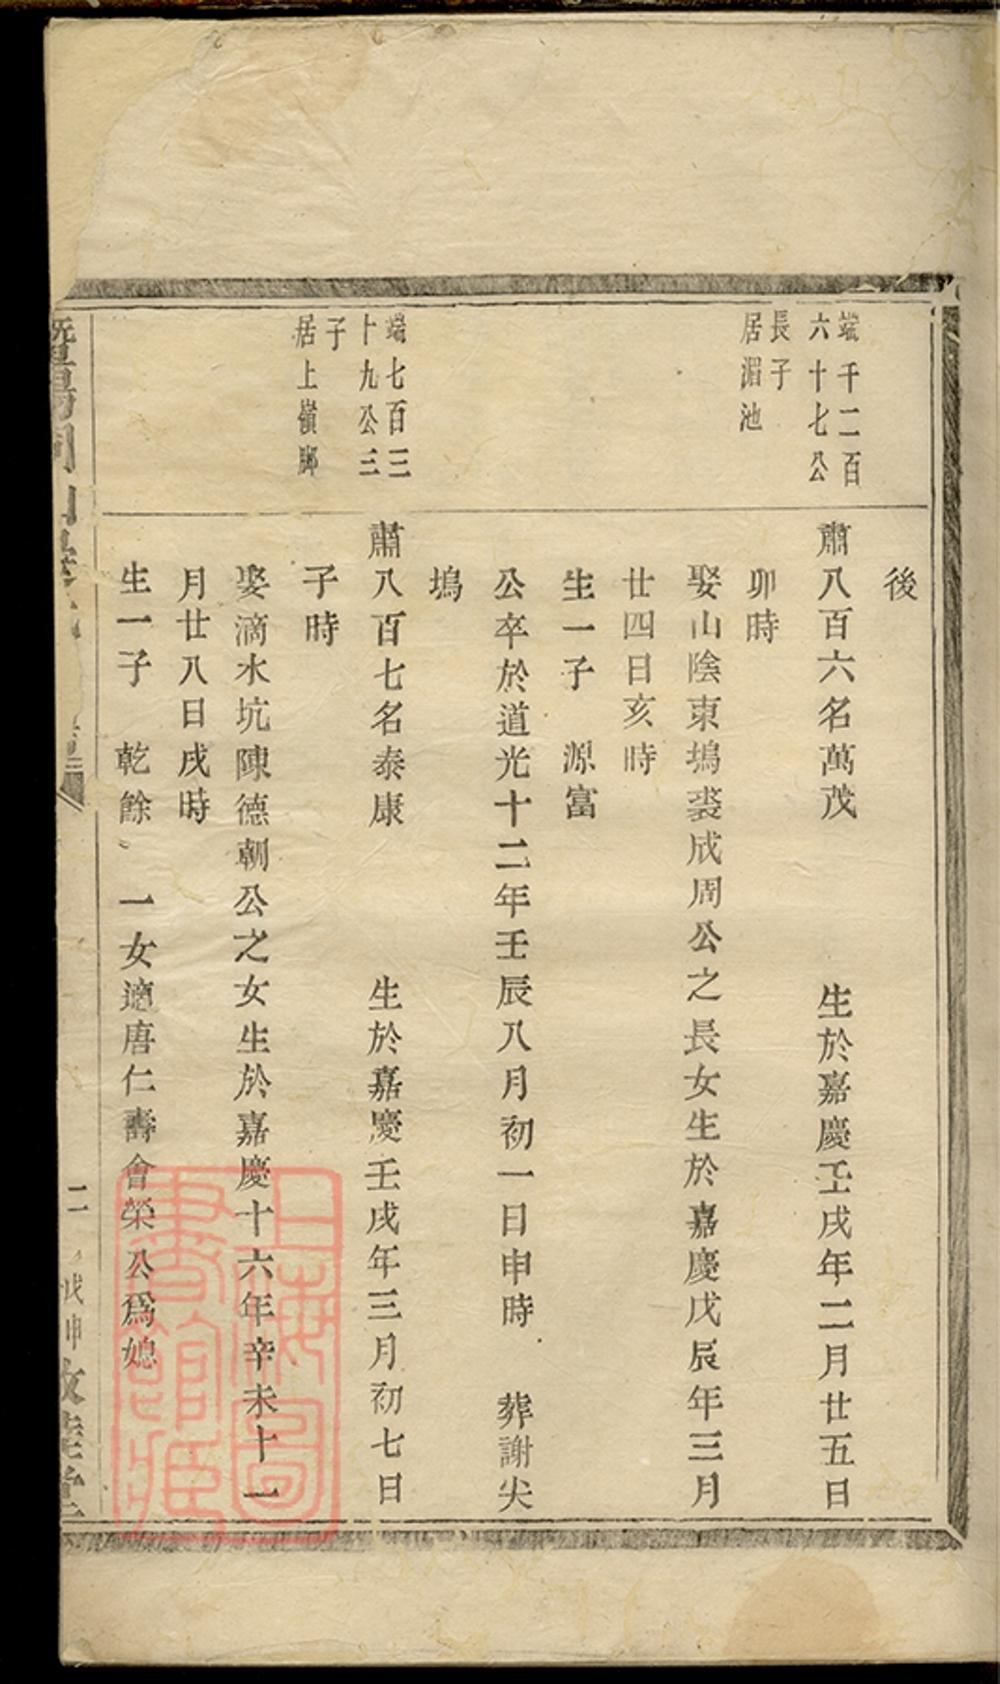 後
端千二百
六十七公
長子
居湄池
肅八百六名萬茂 生於嘉慶壬戌年二月廿五日
卯時
娶山陰東塢裘成周公之長女生於嘉慶戊辰年三月
廿四日亥時
生一子 源富
公卒於道光十二年壬辰八月初一日申時 葬謝尖
塢
端七百三
十九公三
子
居上嶺腳
肅八百七名泰康 生於嘉慶壬戌年三月初七日
子時
娶滴水坑陳德朝公之女生於嘉慶十六年辛未十一
月廿八日戌時
生一子 乾餘 一女適唐仁壽會榮公為媳
二
上海圖
書館藏